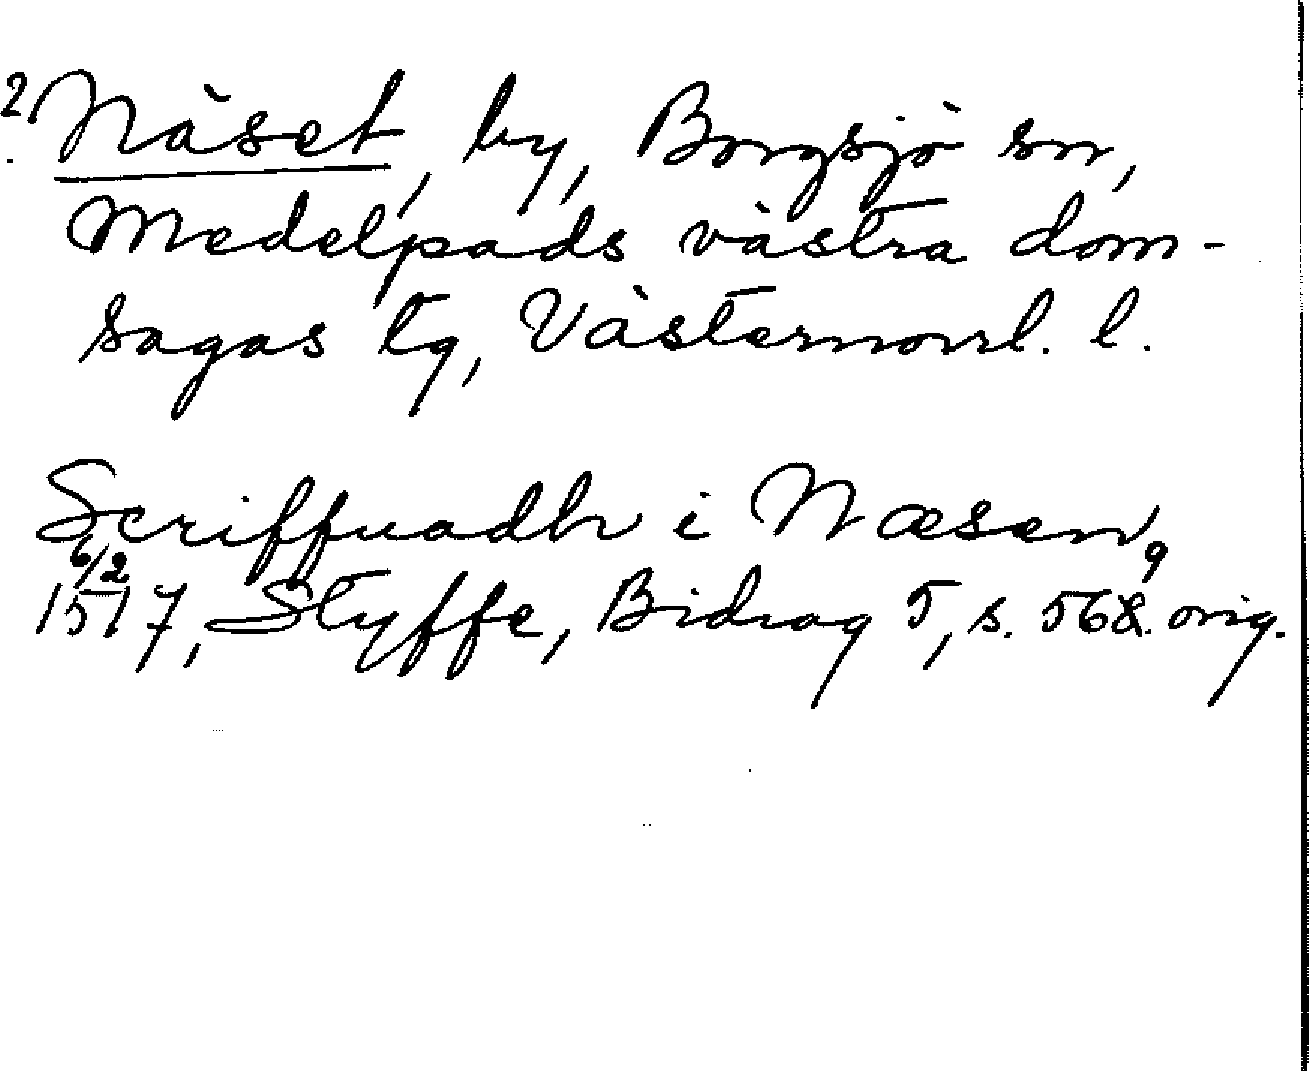 ? Näset, by, Borgsjö sn,
Medelpads västra dom-
sagas tg, Västernorrl. l.
Scriffuadh i Næsen,
6/2 1517, Styffe, Bidrag 5, s. 568. orig.